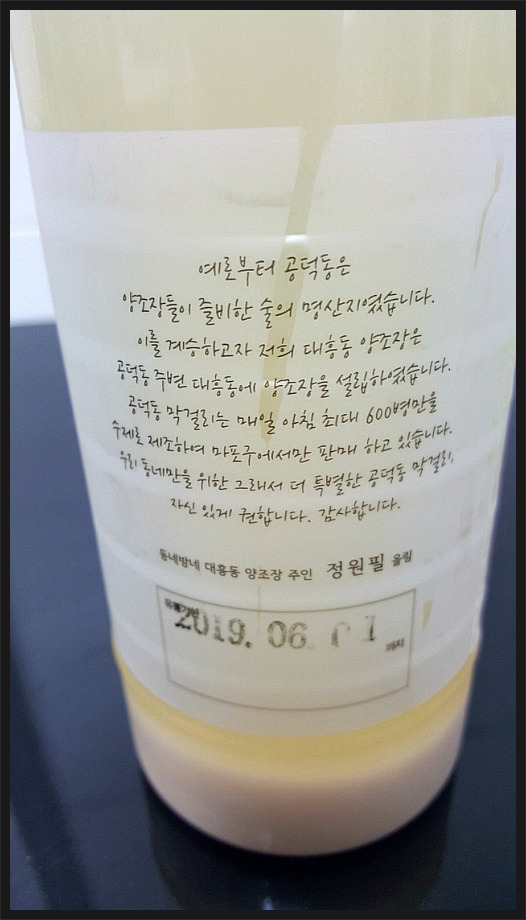 예로부터 공덕동은
양조장들이 즐비한 술의 명산지였습니다.
이를 계승하고자 저희 대흥동 양조장은
공덕동 주변 대흥동에 양조장을 설립하였습니다.
공덕동 막걸리는 매일 아침 최대 600병만을
수제로 제조하여 마포구에서만 판매 하고 있습니다.
우리 동네만을 위한 그래서 더 특별한 공덕동 막걸리,
자신 있게 권합니다. 감사합니다.
동네방네 대흥동 양조장 주인 정원필 올림
유통기한
2019. 06. 까지